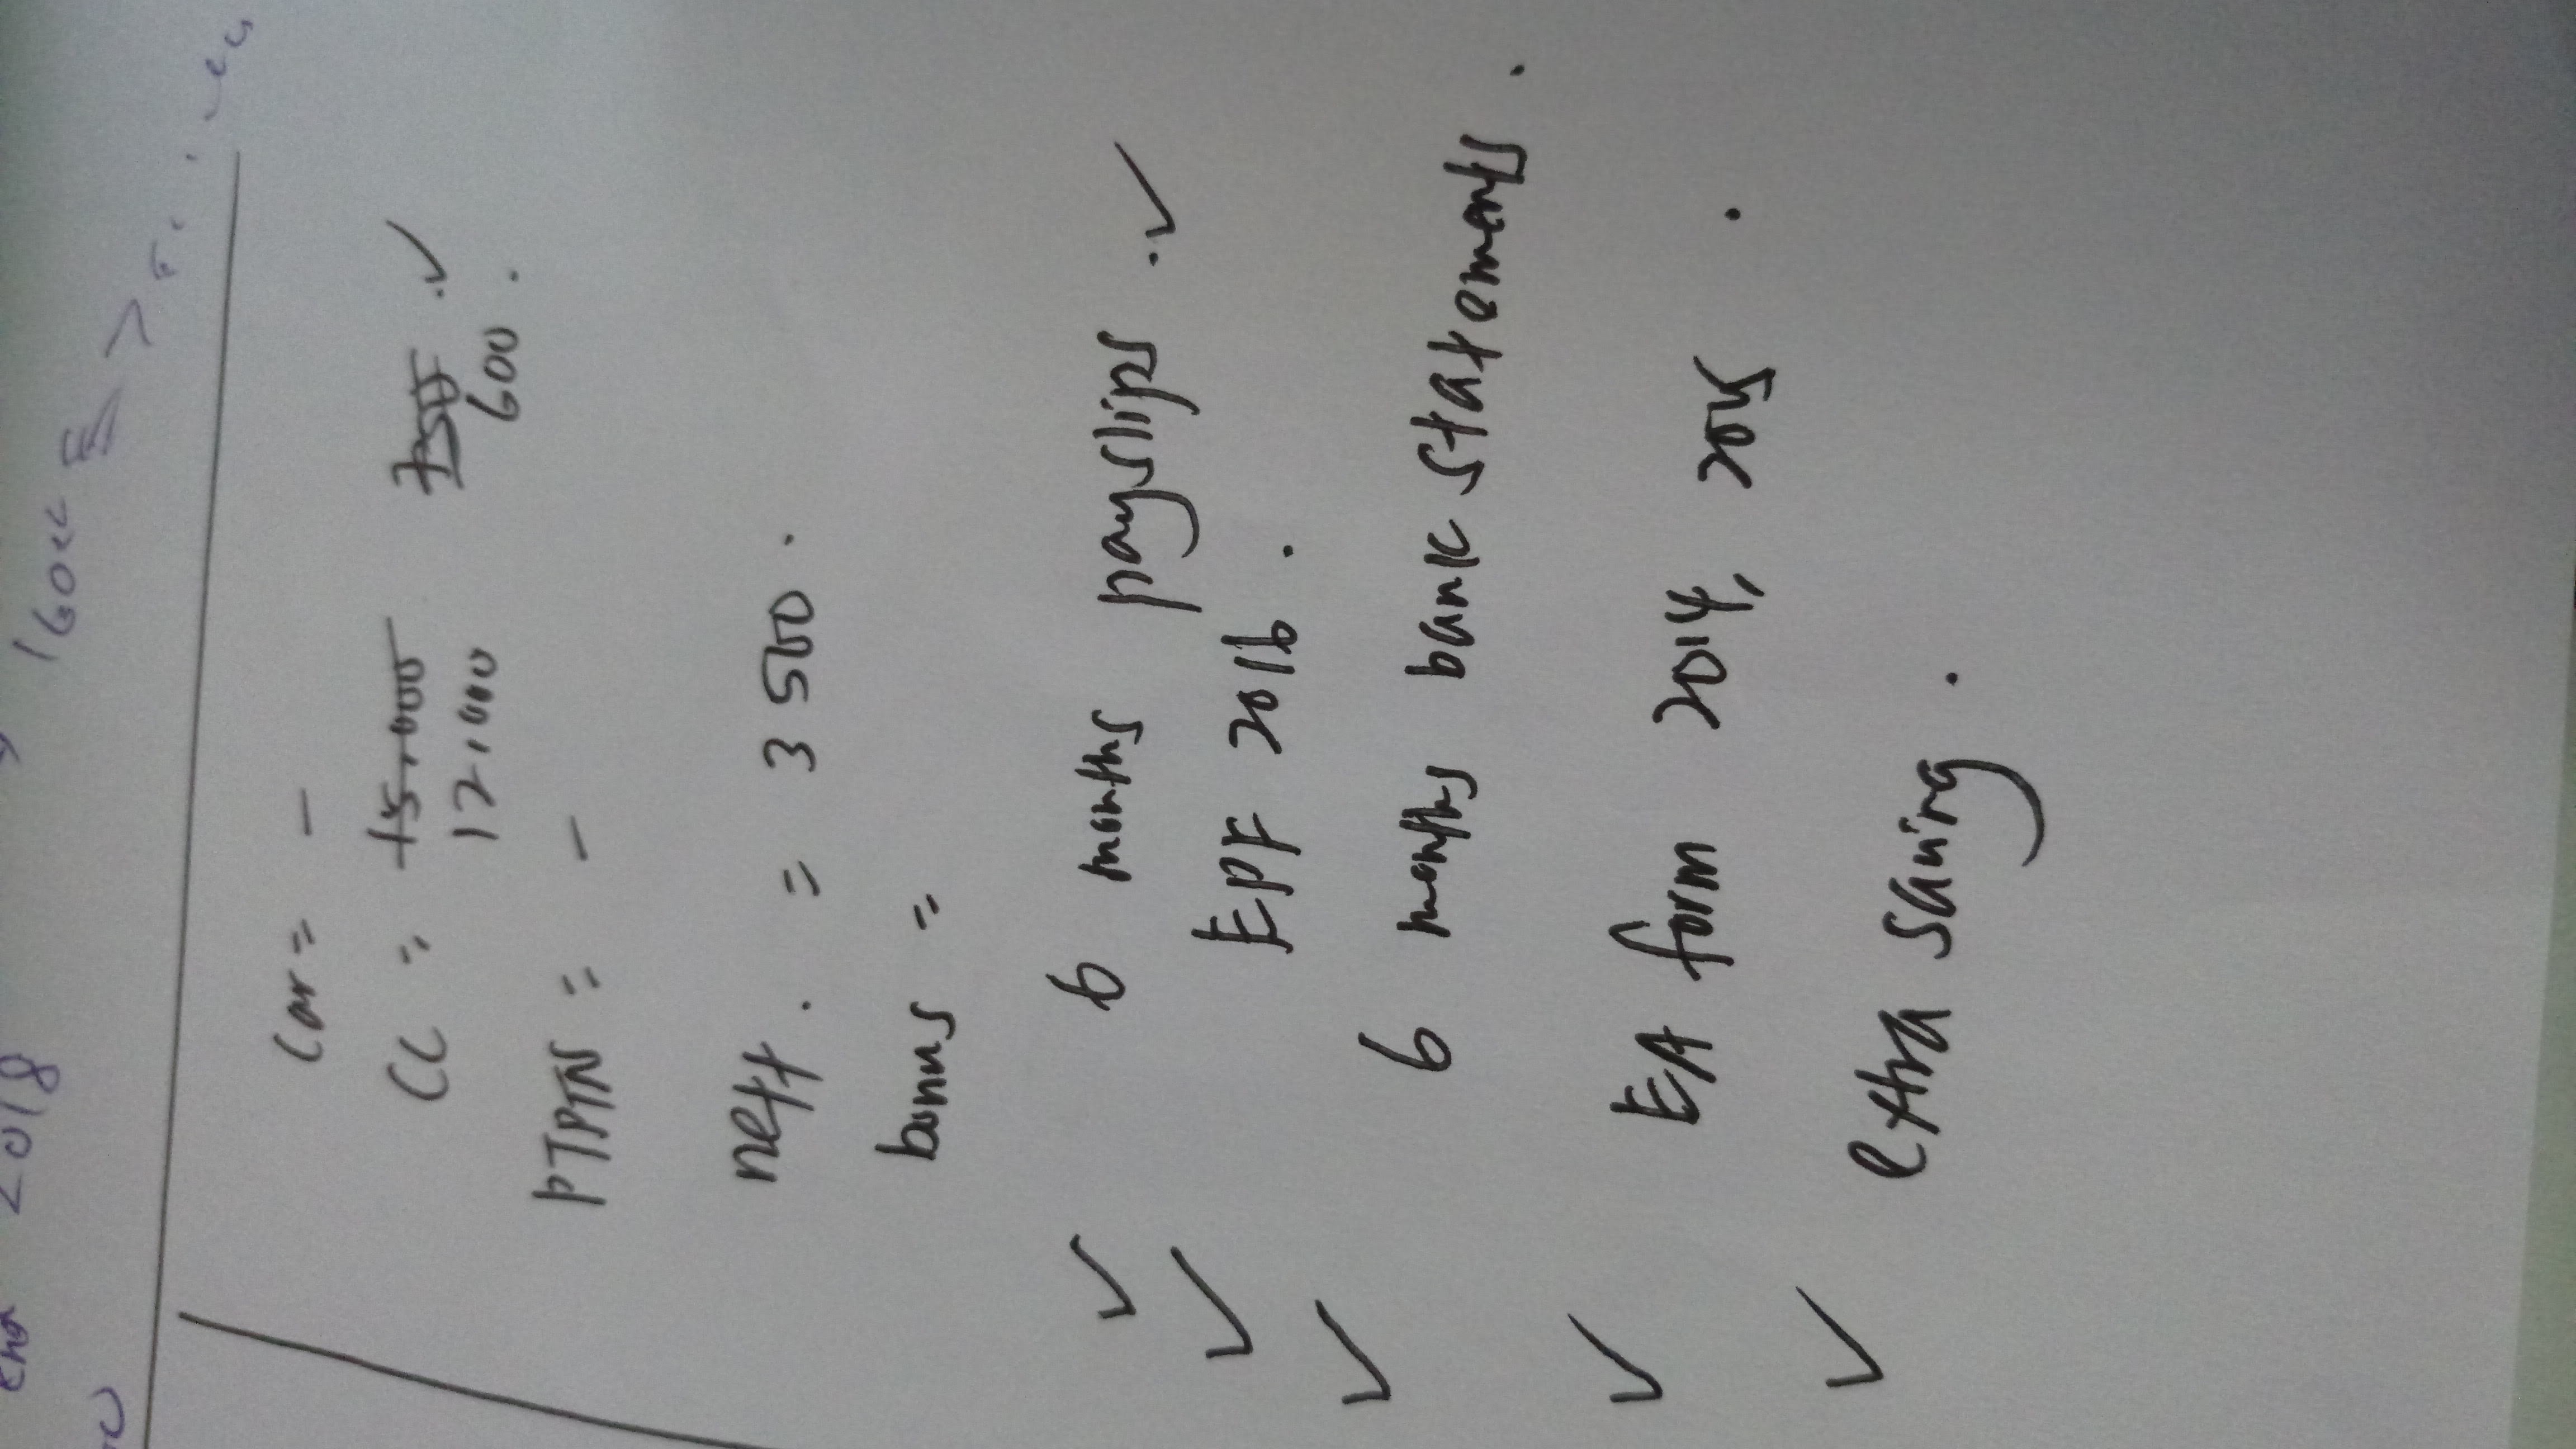 end 2018
car = –
CC = 15,000 750 ✓
12,000 600.
PTPTN = –
nett. = 3500.
bonus =
✓ 6 months payslips. ✓
✓ EPF 2016.
✓ 6 months bank statements.
✓ EA form 2014, 2015.
✓ extra saving.